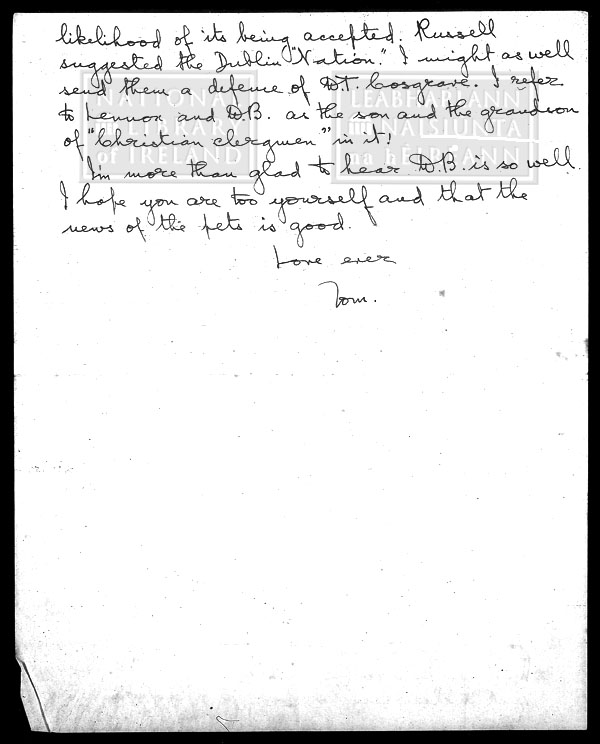 likelihood of its being accepted. Russell
suggested the Dublin "Nation." I might as well
send them a defence of W.T. Cosgrave. I refer
to Lennox and D.B. as the son and the grandson
of "Christian clergymen" in it!
I'm more than glad to hear D.B. is so well.
I hope you are too yourself and that the
news of the pets is good.
Love ever
Tom.
NATIONAL
LIBRARY
of IRELAND
LEABHARLANN
NÁISIÚNTA
na hÉIREANN